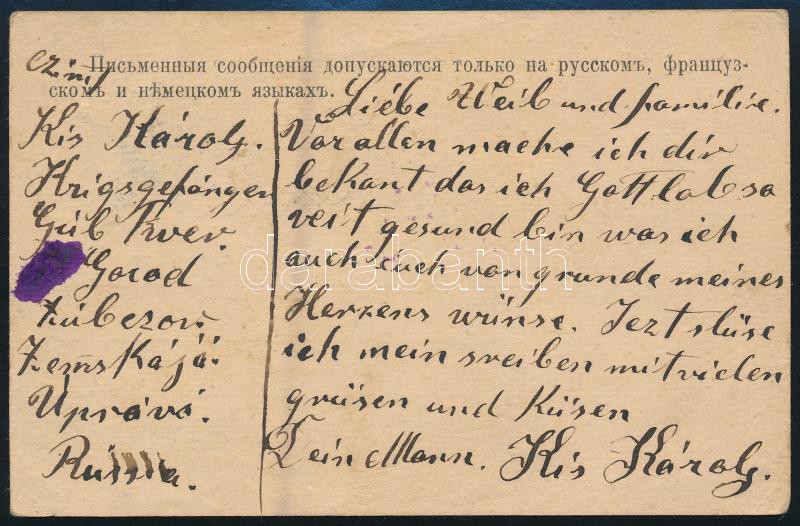 Письменныя сообщенія допускаются только на русскомъ, француз-
скомъ и нѣмецкомъ языкахъ.
Kis Károly.
Krigsgefángen
Gub Tver.
Gorod
Zubczow
Zemskájá
Úprává.
Russia.
Liebe Weib und familie.
Vor allen mache ich dir
bekant das ich Gottlob so
veit gesund bin was ich
auch euch von grunde meines
Herzens wünse. Jezt slüse
ich mein sreiben mit vielen
grüsen und Küsen
Dein Mann. Kis Károly.
darabanth